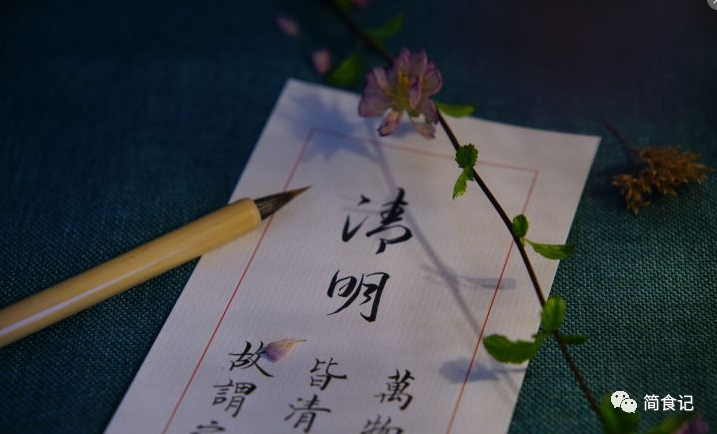 清明
萬物
皆清
故謂
简食记